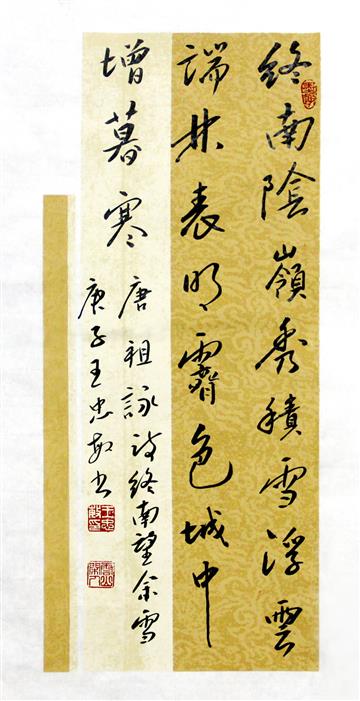 終南陰嶺秀積雪浮雲
端林表明霽色城中
增暮寒
唐祖詠詩終南望余雪
庚子王忠敏书